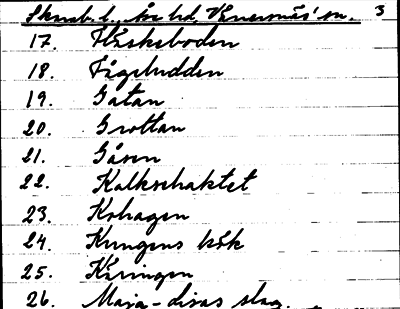 Skarab. l., Åse hd, Wänersnäs' sn. 3
17. Fläskeboden
18. Fågeludden
19. Gatan
20. Grottan
21. Gåsen
22. Kalkschaktet
23. Kohagen
24. Kungens kök
25. Käringen
26. Maja-disas slag.